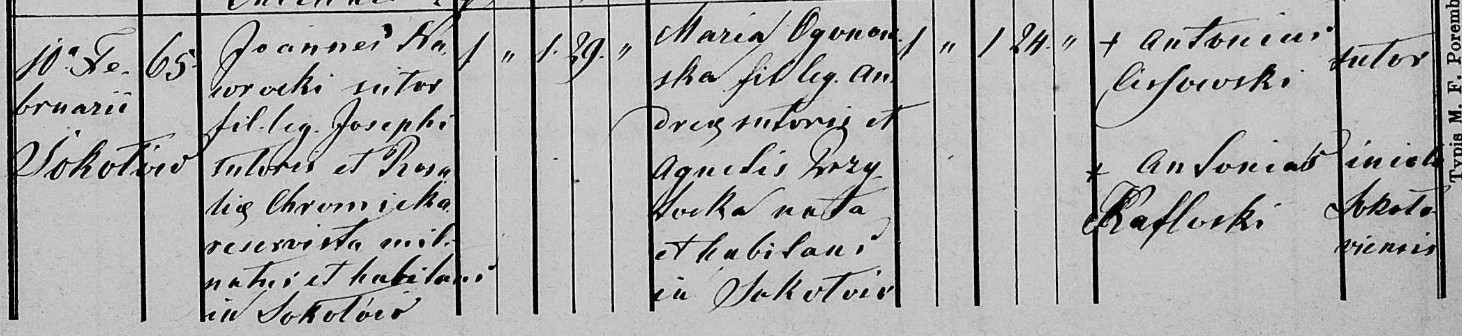 10a Fe-
bruarii
Sokołów
65.
Joannes Na
wrocki sutor
fil. leg. Josephi
sutoris et Rosa
liæ Chromicka
reservista mil.
natus et habitans
in Sokołów
1 " 1. 29. "
Maria Ogonow
ska fil leg. An
dreæ sutoris et
Agnetis Przy
łocka nata
et habitans
in Sokołów
1 " 1 24. "
+ Antonius
Cissowski
sutor
+ Antonius
Rafloski
incola
Sokoło-
viensis
Typis M. F. Poremb